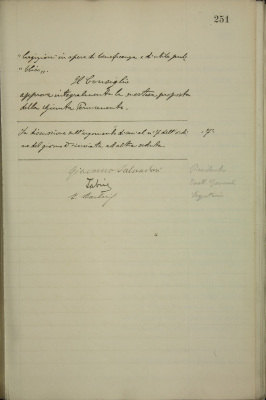 251
"Cagnoni" in opere di beneficenza e di utile pub-
"blico".
Il Consiglio
approva integralmente la nostra proposta
della Giunta Permanente.
La discussione sull'argomento di cui al n. 7 dell'ordi-
ne del giorno è rinviata ad altra seduta.
7°
Giacomo Salvadori
Presidente
Segretario